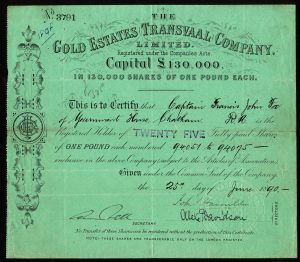 No. 3791
THE
GOLD ESTATES TRANSVAAL COMPANY,
LIMITED.
Registered under the Companies Acts.
Capital £130,000.
IN 130,000 SHARES OF ONE POUND EACH.
This is to Certify that Captain Francis John Fox
of Government House, Chatham R.N. is the
Registered Holder of TWENTY FIVE Fully paid Shares
of ONE POUND each numbered 94051 to 94075
inclusive in the above Company, subject to the Articles of Association.
Given under the Common Seal of the Company,
the 25th day of June 1890.
Alex Davidson
DIRECTORS
SECRETARY
No Transfer of these Shares can be registered without the production of this Certificate.
NOTE: THESE SHARES ARE TRANSFERABLE ONLY ON THE LONDON REGISTER